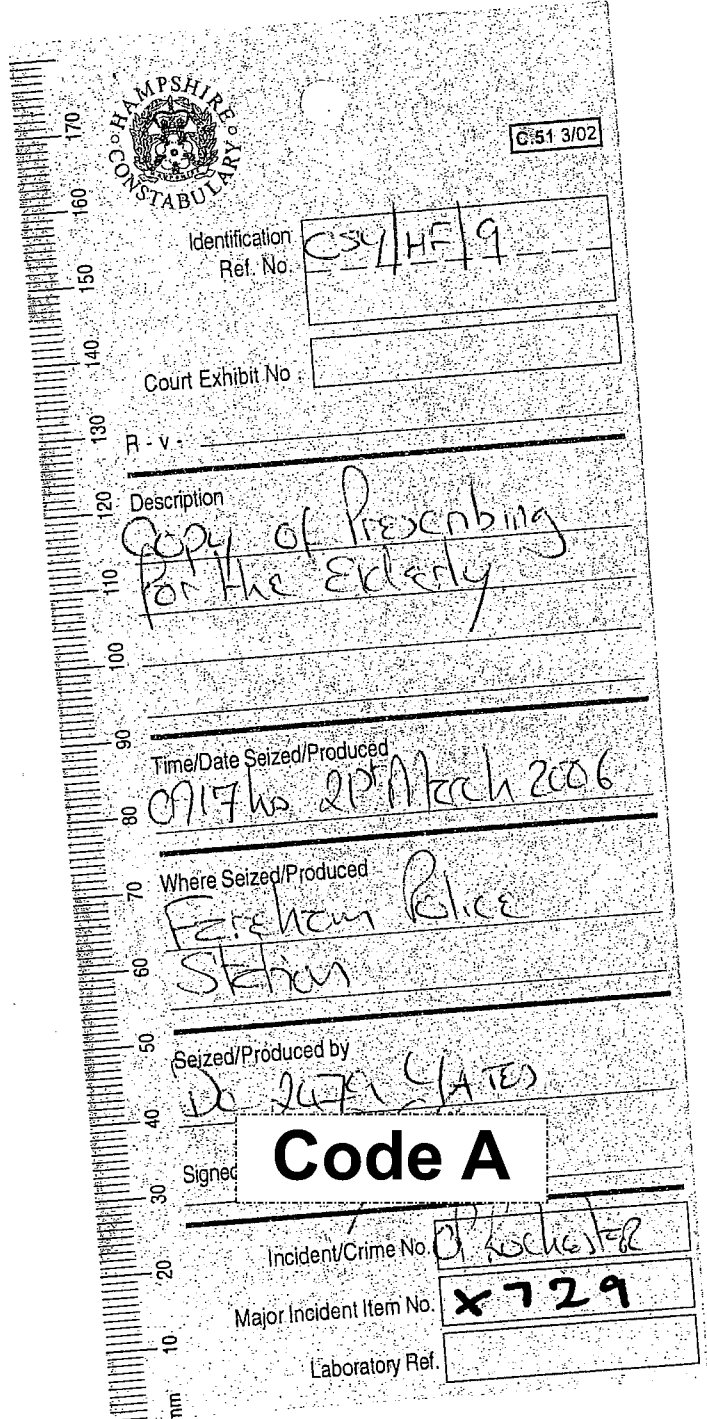 HAMPSHIRE CONSTABULARY
C:51 3/02
Identification CSY/HF/9
Ref. No.
Court Exhibit No
R - v -
Description
Copy of Prescribing
for the Elderly
Time/Date Seized/Produced
0917hs 21st March 2006
Where Seized/Produced
Fareham Police
Station
Seized/Produced by
DC 2479 YATES
Signed
Code A
Incident/Crime No. OP ROCHESTER
Major Incident Item No. X729
Laboratory Ref.
170
160
150
140
130
120
110
100
90
80
70
60
50
40
30
20
10
mm